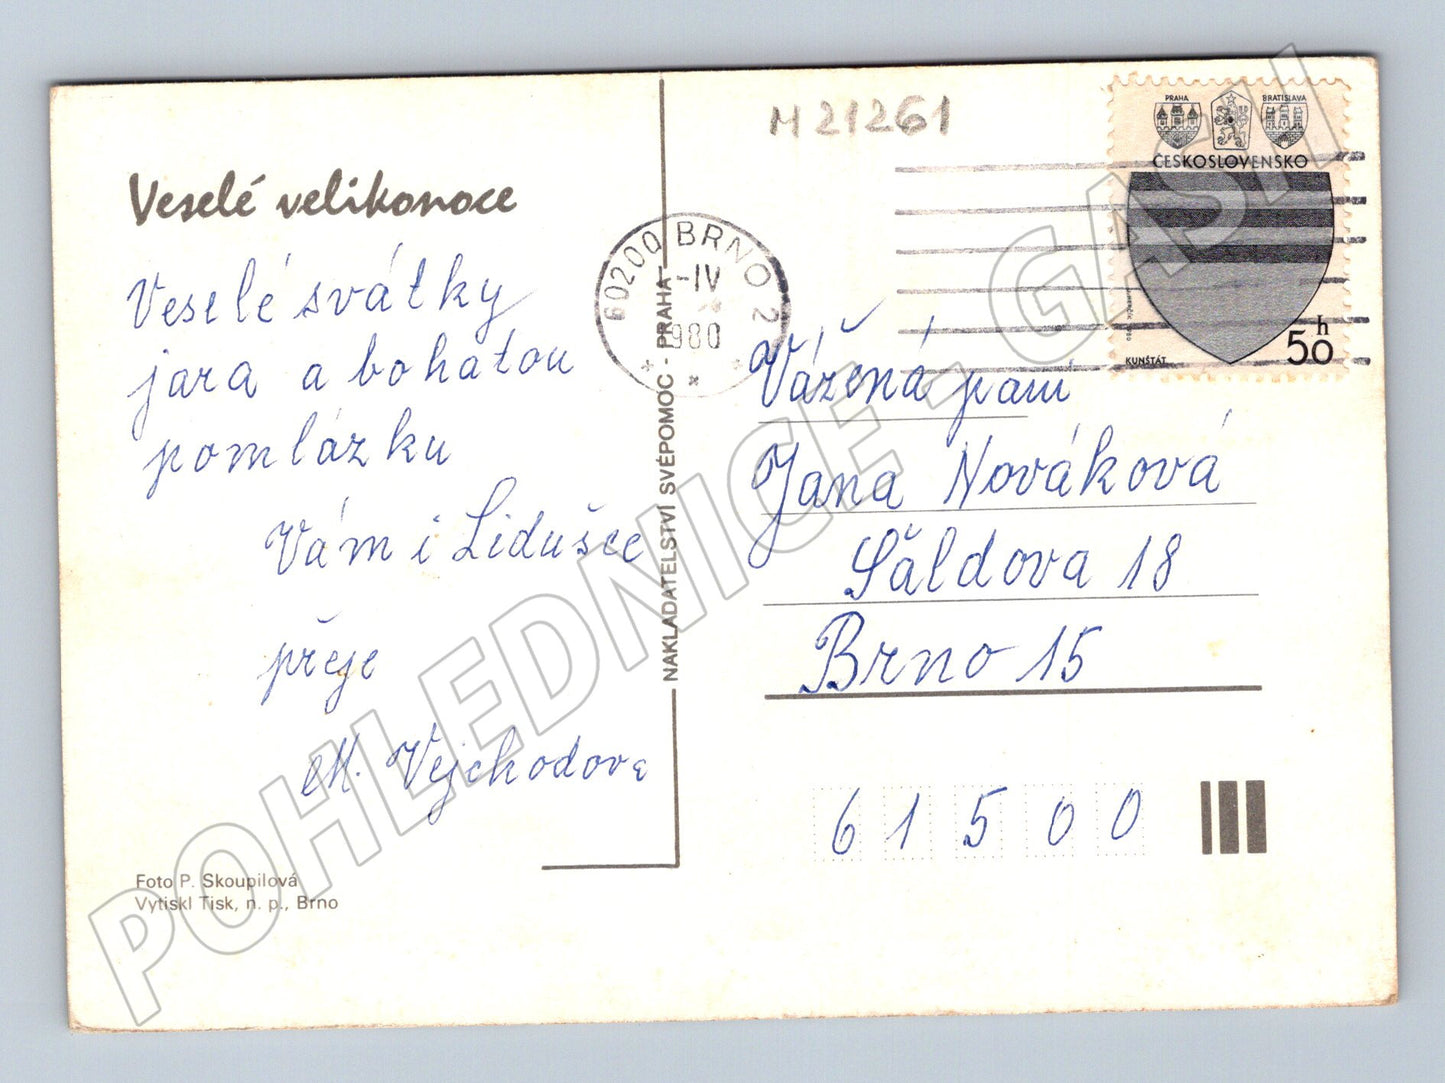 M 21261
PRAHA
BRATISLAVA
ČESKOSLOVENSKO
KUNŠTÁT
50 h
60200 BRNO 2
-IV
1980
Veselé velikonoce
Veselé svátky
jara a bohatou
pomlázku
Vám i Lidušce
přeje
M. Vejchodova
Foto P. Skoupilová
Vytiskl Tisk, n. p., Brno
NAKLADATELSTVÍ SVÉPOMOC - PRAHA
Vážená paní
Jana Nováková
Šáldova 18
Brno 15
61500
POHLEDNICE - GASH